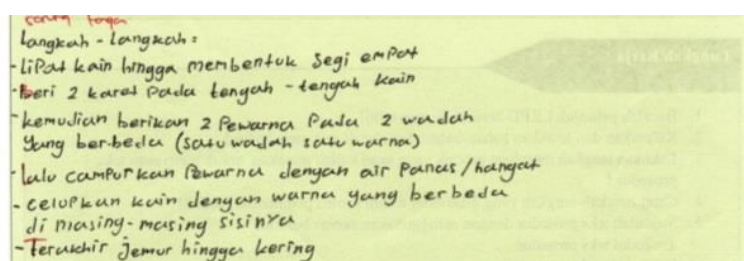 Langkah - Langkah:
- Lipat kain hingga membentuk segi empat
- Beri 2 karet pada tengah - tengah kain
- kemudian berikan 2 Pewarna Pada 2 wadah
yang ber-beda (satu wadah satu warna)
- Lalu campurkan Pewarna dengan air panas/hangat
- celupkan kain dengan warna yang berbeda
di masing-masing sisinya
- Terakhir jemur hingga kering